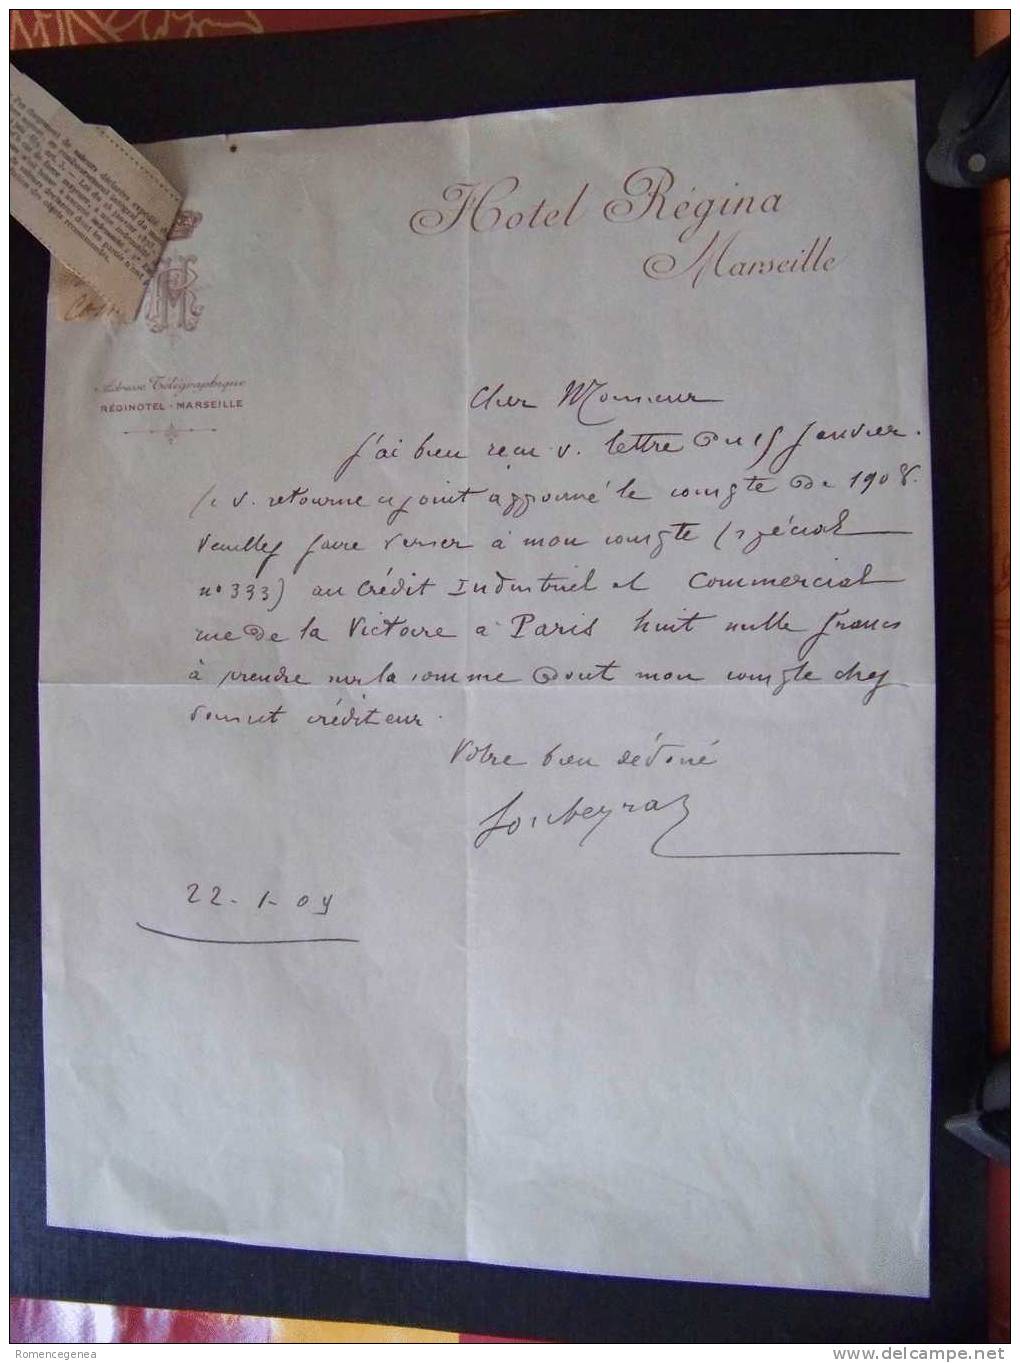 Hotel Régina
Marseille
HR
Adresse Télégraphique
RÉGINOTEL - MARSEILLE
Cher Monsieur
J'ai bien reçu v. lettre du 15 Janvier.
Je v. retourne ci joint approuvé le compte de 1908.
Veuillez faire verser à mon compte (spécial
no 333) au Crédit Industriel et Commercial
rue de la Victoire à Paris huit mille francs
à prendre sur la somme dont mon compte chez
vous est créditeur.
Votre bien dévoué
Soubeyran
22-1-09
Romencegenea
www.delcampe.net